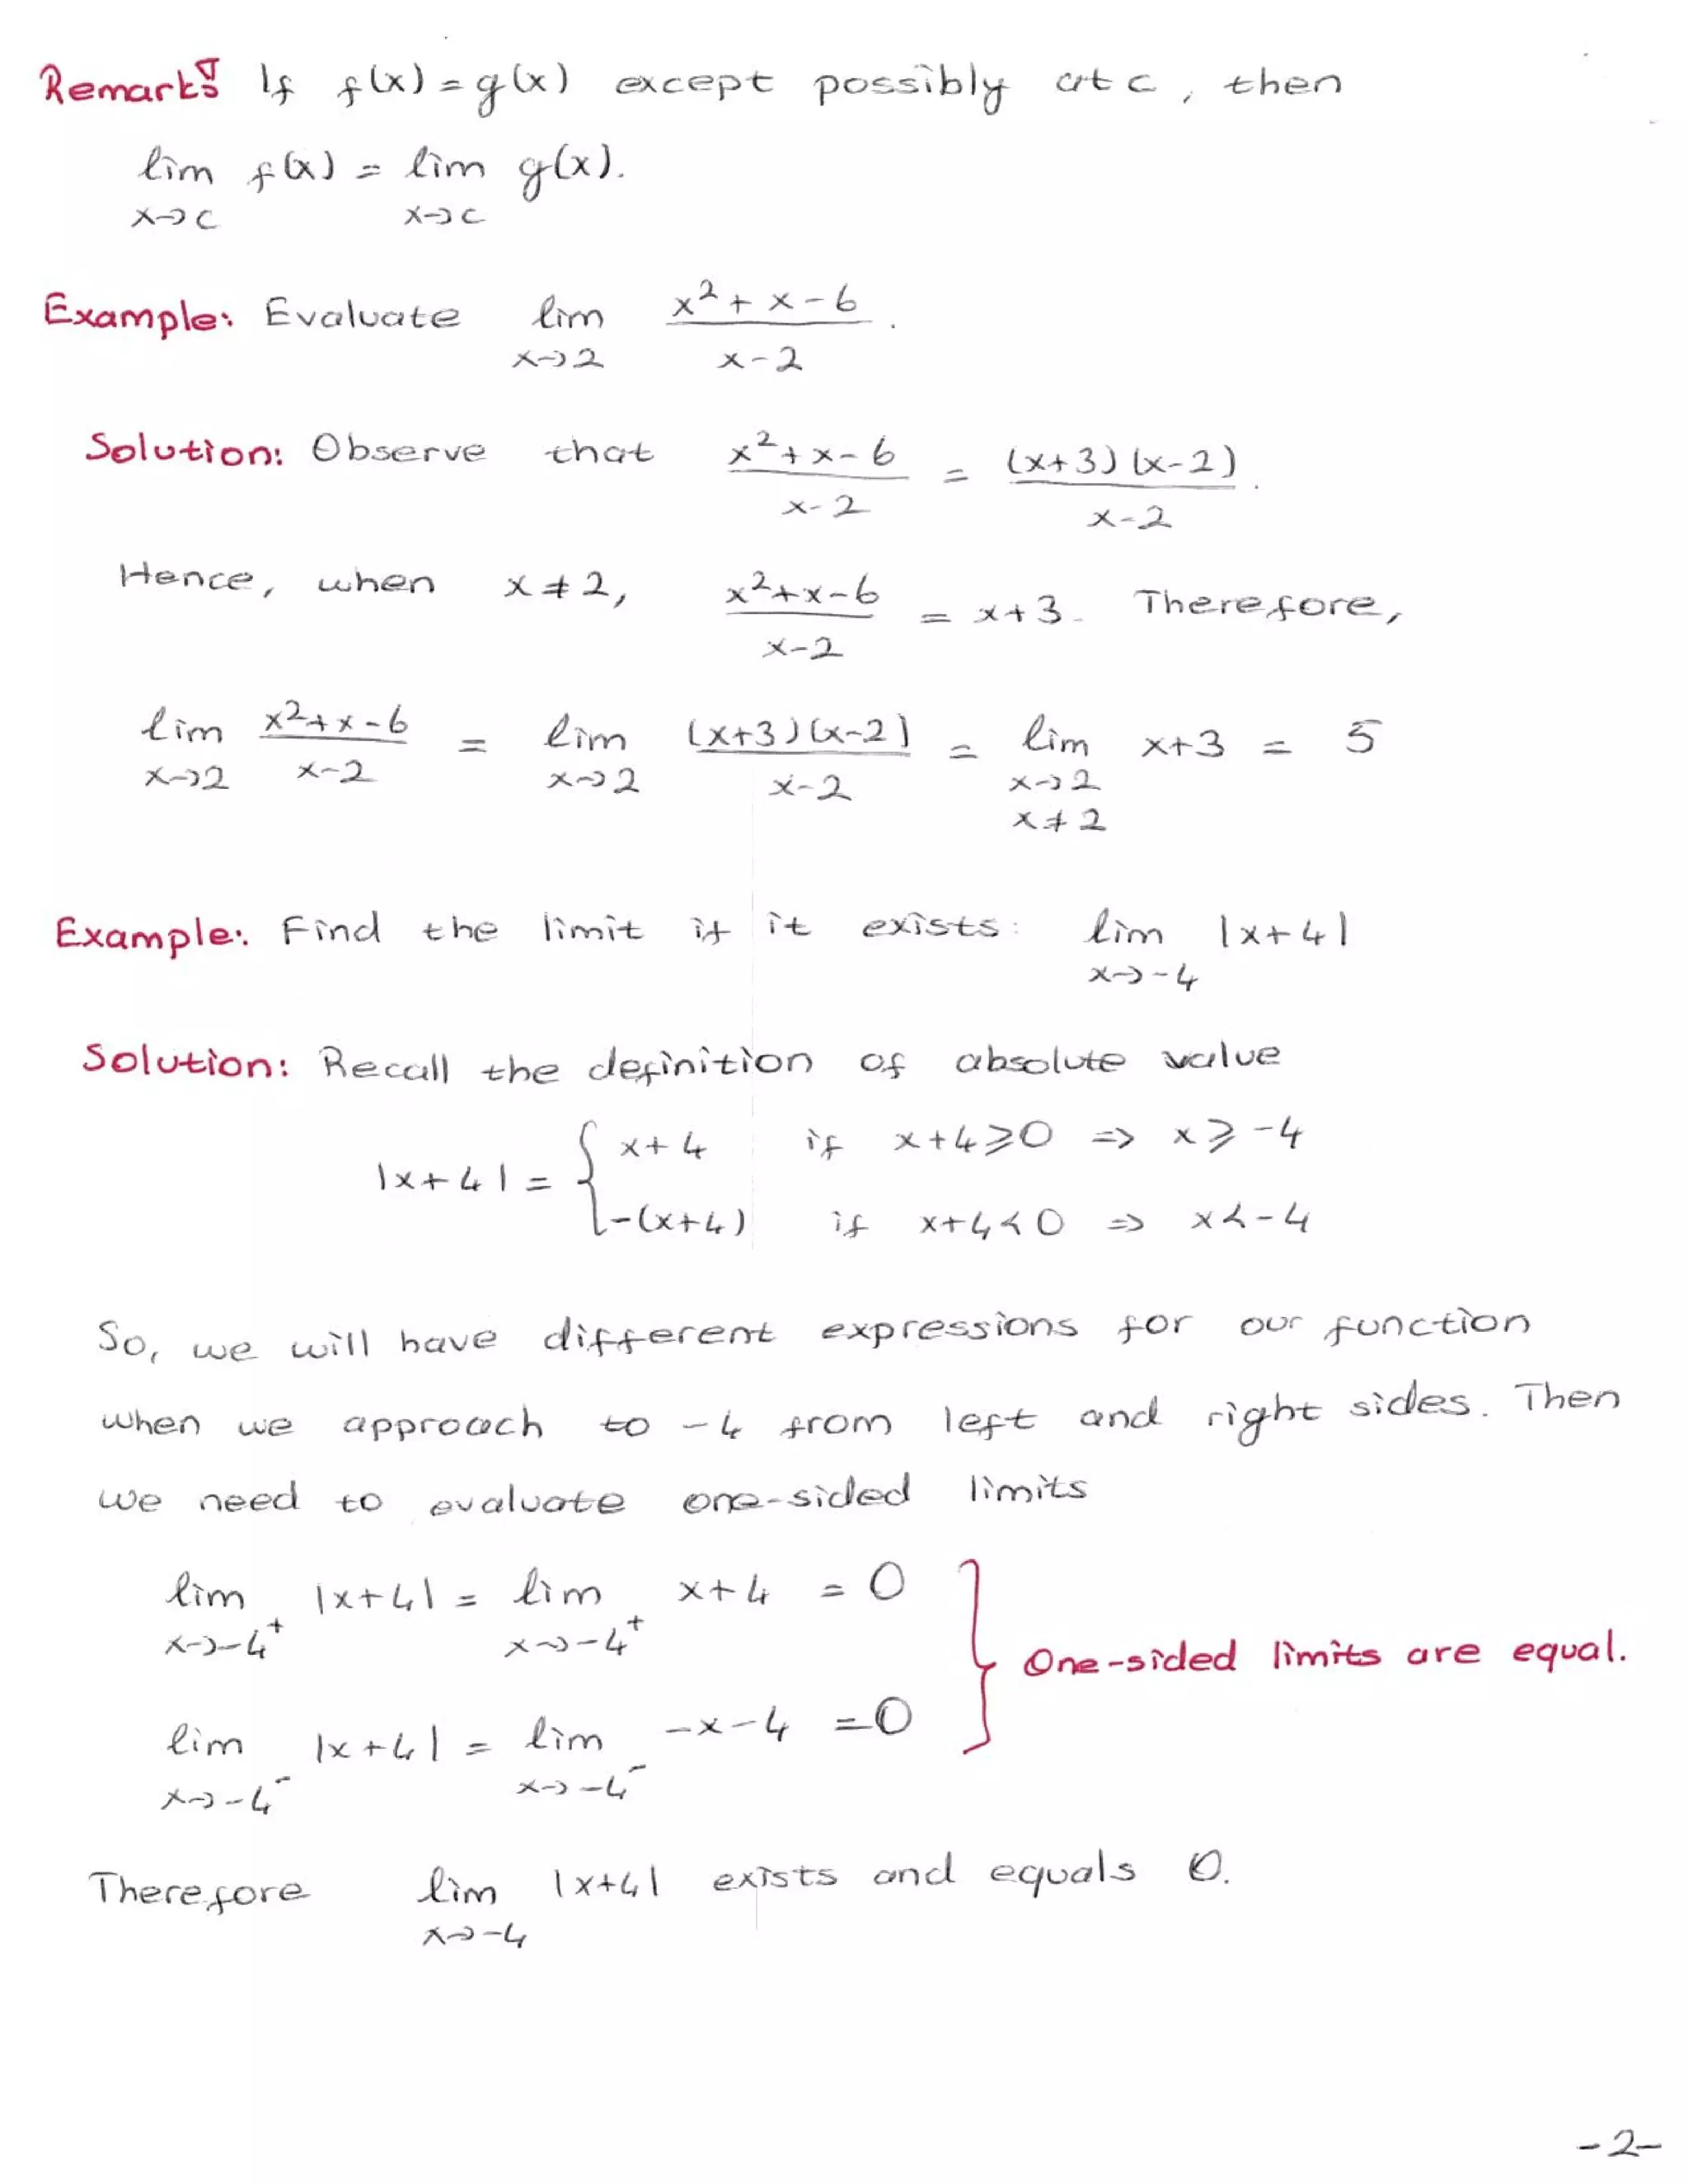 Remark: If f(x) = g(x) except possibly at c, then
lim f(x) = lim g(x).
x→c x→c
Example: Evaluate lim x²+x-6 / x-2 .
x→2
Solution: Observe that x²+x-6 / x-2 = (x+3)(x-2) / x-2 .
Hence, when x≠2, x²+x-6 / x-2 = x+3. Therefore,
lim x²+x-6 / x-2 = lim (x+3)(x-2) / x-2 = lim x+3 = 5
x→2 x→2 x→2
x≠2
Example: Find the limit if it exists: lim |x+4|
x→-4
Solution: Recall the definition of absolute value
|x+4| = { x+4 if x+4≥0 ⇒ x≥-4
-(x+4) if x+4<0 ⇒ x<-4
So, we will have different expressions for our function
when we approach to -4 from left and right sides. Then
we need to evaluate one-sided limits
lim |x+4| = lim x+4 = 0
x→-4⁺ x→-4⁺
} One-sided limits are equal.
lim |x+4| = lim -x-4 = 0
x→-4⁻ x→-4⁻
Therefore lim |x+4| exists and equals 0.
x→-4
-2-